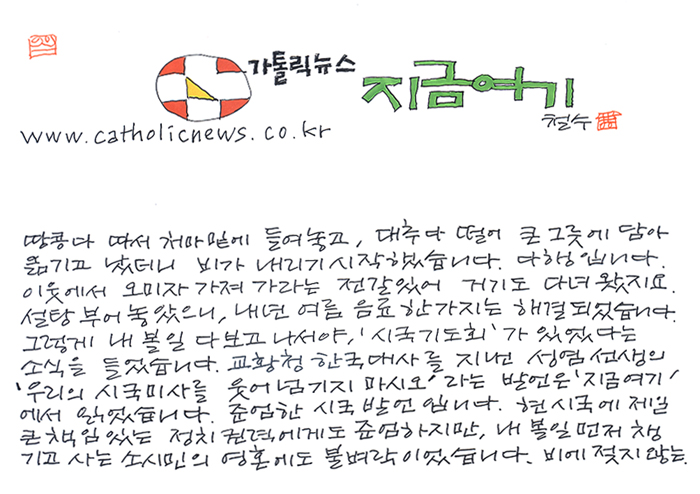 가톨릭뉴스 지금여기
철수
www.catholicnews.co.kr
땅콩 다 따서 처마밑에 들여놓고, 대추 다 떨어 큰 그릇에 담아
옮기고 났더니 비가 내리기 시작했습니다. 다행입니다.
이웃에서 오미자 가져 가라는 전갈있어 거기도 다녀 왔지요.
설탕 부어 놓았으니, 내년 여름 음료 한가지는 해결되었습니다.
그렇게 내 볼일 다 보고 나서야, '시국기도회'가 있었다는
소식을 들었습니다. 교황청 한국대사를 지낸 성염선생의
'우리의 시국미사를 웃어 넘기지 마시오'라는 발언은 '지금여기'
에서 읽었습니다. 준엄한 시국 발언입니다. 현 시국에 제일
큰 책임 있는 정치권력에게도 준엄하지만, 내 볼일 먼저 챙
기고 사는 소시민의 영혼에도 불벼락이었습니다. 비에 젖지 않는